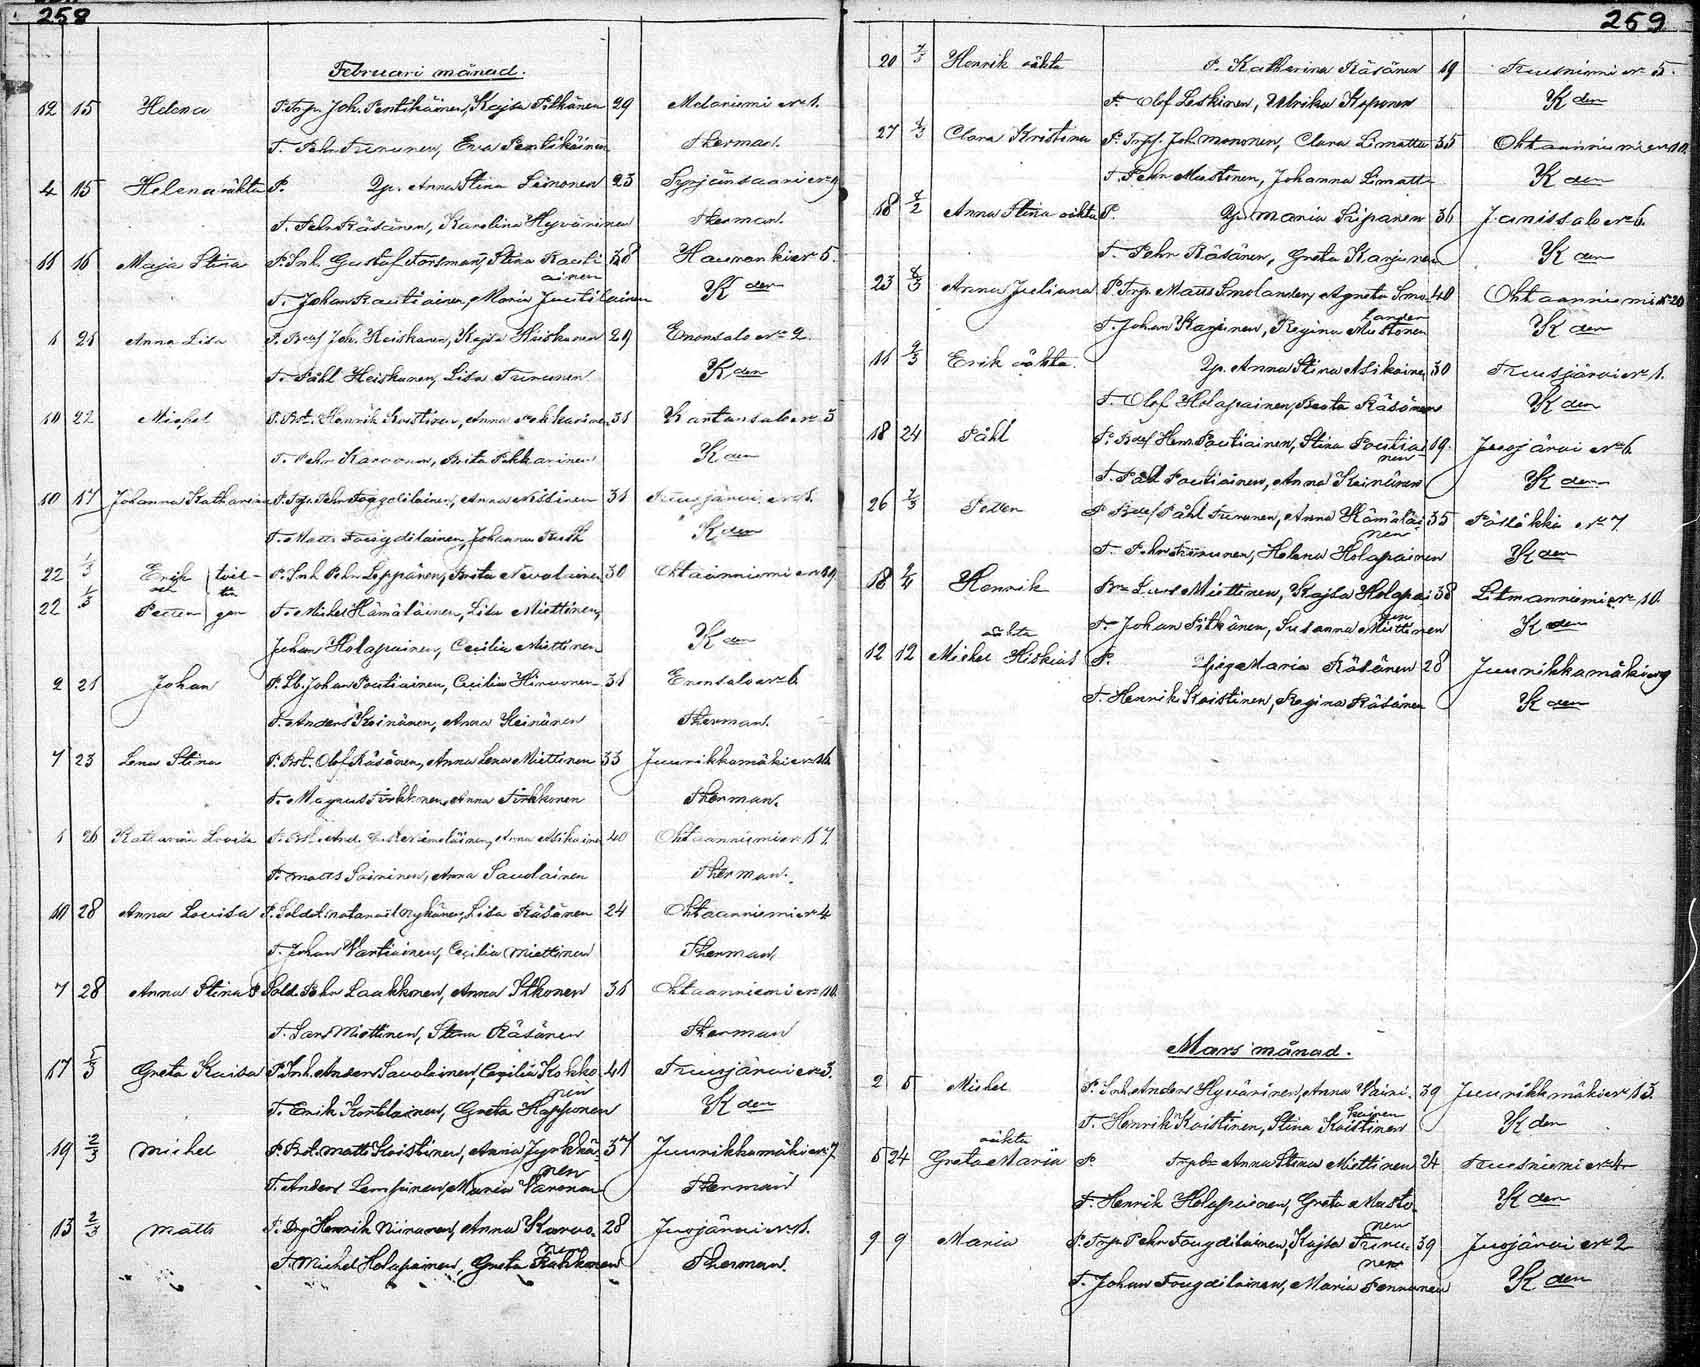 258
Februari månad.
12 15 Helena P. Trp. Joh. Pentikäinen, Kajsa Pitkänen 29 Melaniemi Nr 1.
T. Pehr Turunen, Eva Pentikäinen Therman.
4 15 Helena oäkta P. Qp. Anna Stina Simonen 23 Syrjänsaari Nr 9
T. Pehr Räsänen, Karolina Hyvärinen Therman.
11 16 Maja Stina P. Inh. Gustaf Forsman, Stina Rauti 38 Haunanki Nr 5.
ainen
T. Johan Rautiainen, Maria Juutilainen K den
1 21 Anna Lisa P. Joh. Heiskanen, Kajsa Heiskanen 29 Enonsalo Nr 2.
T. Påhl Heiskanen, Lisa Turunen K den
10 22 Michel P. Bd. Henrik Kostinen, Anna Pekkarinen 31 Kartansalo Nr 3
T. Pehr Karvonen, Brita Pekkarinen K den
10 17 Johanna Katharina P. Trp. Pehr Fougdilainen, Anna Nissinen 31 Tuusjärvi Nr 1.
T. Matts Fougdilainen, Johanna K den
22 1/3 Erik tvil-
och lin
P. Inh. Pehr Leppänen, Brita Nevalainen 30 Ohtaanniemi Nr 19
22 1/3 Petter gar T. Michel Hämäläinen, Lisa Miettinen,
Johan Holapainen, Cecilia Miettinen K den
2 21 Johan P. Lb. Johan Poutiainen, Cecilia Hirvonen 31 Enonsalo Nr 6
T. Anders Keinänen, Anna Keinänen Therman.
7 23 Lena Stina P. Bd. Olof Räsänen, Anna Lena Miettinen 33 Juurikkamäki Nr 16
T. Magnus Tirkkonen, Anna Tirkkonen Therman.
1 26 Katharina Lovisa P. And. Anna Asikainen 40 Ohtaanniemi Nr 17.
T. Matts Soininen, Anna Savolainen Therman.
10 28 Anna Lovisa P. Soldat. Natanaël Nykänen, Lisa Räsänen 24 Ohtaanniemi Nr 4
T. Johan Vartiainen, Cecilia Miettinen Therman
7 28 Anna Stina P Sold. Pehr Laakkonen, Anna Itkonen 31 Ohtaanniemi Nr 10.
T. Lars Miettinen, Stina Räsänen Therman
17 1/3 Greta Kaisa P. Inh. Anders Savolainen, Cecilia Kokko- 41 Tuusjärvi Nr 3.
nen
T. Erik Kortelainen, Greta Happonen K den
19 2/3 Michel P. Bd. Matts Koistinen, Anna Jyrkkä- 37 Juurikkamäki Nr 7
nen
T. Anders Lempinen, Maria Varonen Therman
13 2/3 Matts P. Drg Henrik Niiranen, Anna Karvo- 28 Juojärvi Nr 1.
nen
T. Michel Holapainen, Greta Kakkonen Therman.
259
20 7/3 Henrik oäkta P. Katharina Räsänen 19 Tuusniemi Nr 5.
T. Olof Leskinen, Ulrika Koponen K den
27 1/3 Clara Kristina P. Trp. Joh. Mononen, Clara Limatta 35 Ohtaanniemi Nr 10.
T. Pehr Mustonen, Johanna Limatta K den
18 Anna Stina oäkta P. Qp. Maria Piipanen 36 Janissalo Nr 6.
T. Pehr Räsänen, Greta Karjunen K den
23 8/3 Anna Juliana P. Trp. Matts Smolander, Agneta Smo- 40 Ohtaanniemi Nr 20
lander
T. Johan Karjunen, Regina Mustonen K den
11 9/3 Erik oäkta. Qp. Anna Stina Asikainen 30 Tuusjärvi Nr 1.
T. Olof Holapainen, Brita Räsänen K den
18 24 Påhl P. Henr. Poutiainen, Stina Poutiai- 19. Juojärvi Nr 6
nen
T. Påhl Poutiainen, Anna Keinänen K den
26 7/3 Petter P. Påhl Turunen, Anna Hämäläi- 35 Pölläkkä Nr 7
nen
T. Pehr Turunen, Helena Holapainen K den
18 2/4 Henrik Lars Miettinen, Kajsa Holapai- 38 Litmaniemi Nr 10.
nen
T. Johan Pitkänen, Susanna Miettinen K den
oäkta
12 12 Michel Hiskias P. Maria Räsänen 28 Juurikkamäki Nr 9
T. Henrik Koistinen, Regina Räsänen K den
Mars månad.
2 5 Michel P. Inh. Anders Hyvärinen, Anna Vaini- 39 Juurikkamäki Nr 13.
kainen
T. Henrik Koistinen, Stina Koistinen K den
oäkta
5 24 Greta Maria P. Anna Stina Miettinen 24 Tuusniemi Nr 4
T. Henrik Holapainen, Greta Musto-
nen
K den
9 9 Maria P. Trp. Pehr Fougdilainen, Kajsa Turu- 39 Juojärvi Nr 2
nen
T. Johan Fougdilainen, Maria Pennanen K den